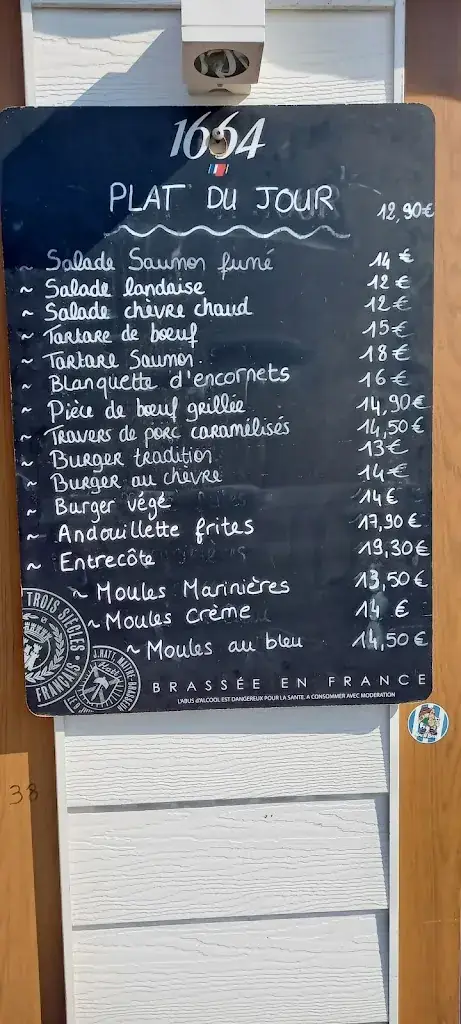 1664
PLAT DU JOUR 12,90€
~ Salade Saumon fumé 14 €
~ Salade landaise 12 €
~ Salade chèvre chaud 12 €
~ Tartare de bœuf 15 €
~ Tartare Saumon. 18 €
~ Blanquette d'encornets 16 €
~ Pièce de bœuf grillée 14,90€
~ Travers de porc caramélisés 14,50€
~ Burger tradition 13€
~ Burger au chèvre 14€
~ Burger végé 14€
~ Andouillette frites 17,90€
~ Entrecôte 19,30€
~ Moules Marinières 13,50€
~ Moules crème 14 €
~ Moules au bleu 14,50€
TROIS SIÈCLES
FRANÇAIS
BRASSÉE EN FRANCE
L'ABUS D'ALCOOL EST DANGEREUX POUR LA SANTÉ. A CONSOMMER AVEC MODERATION
38